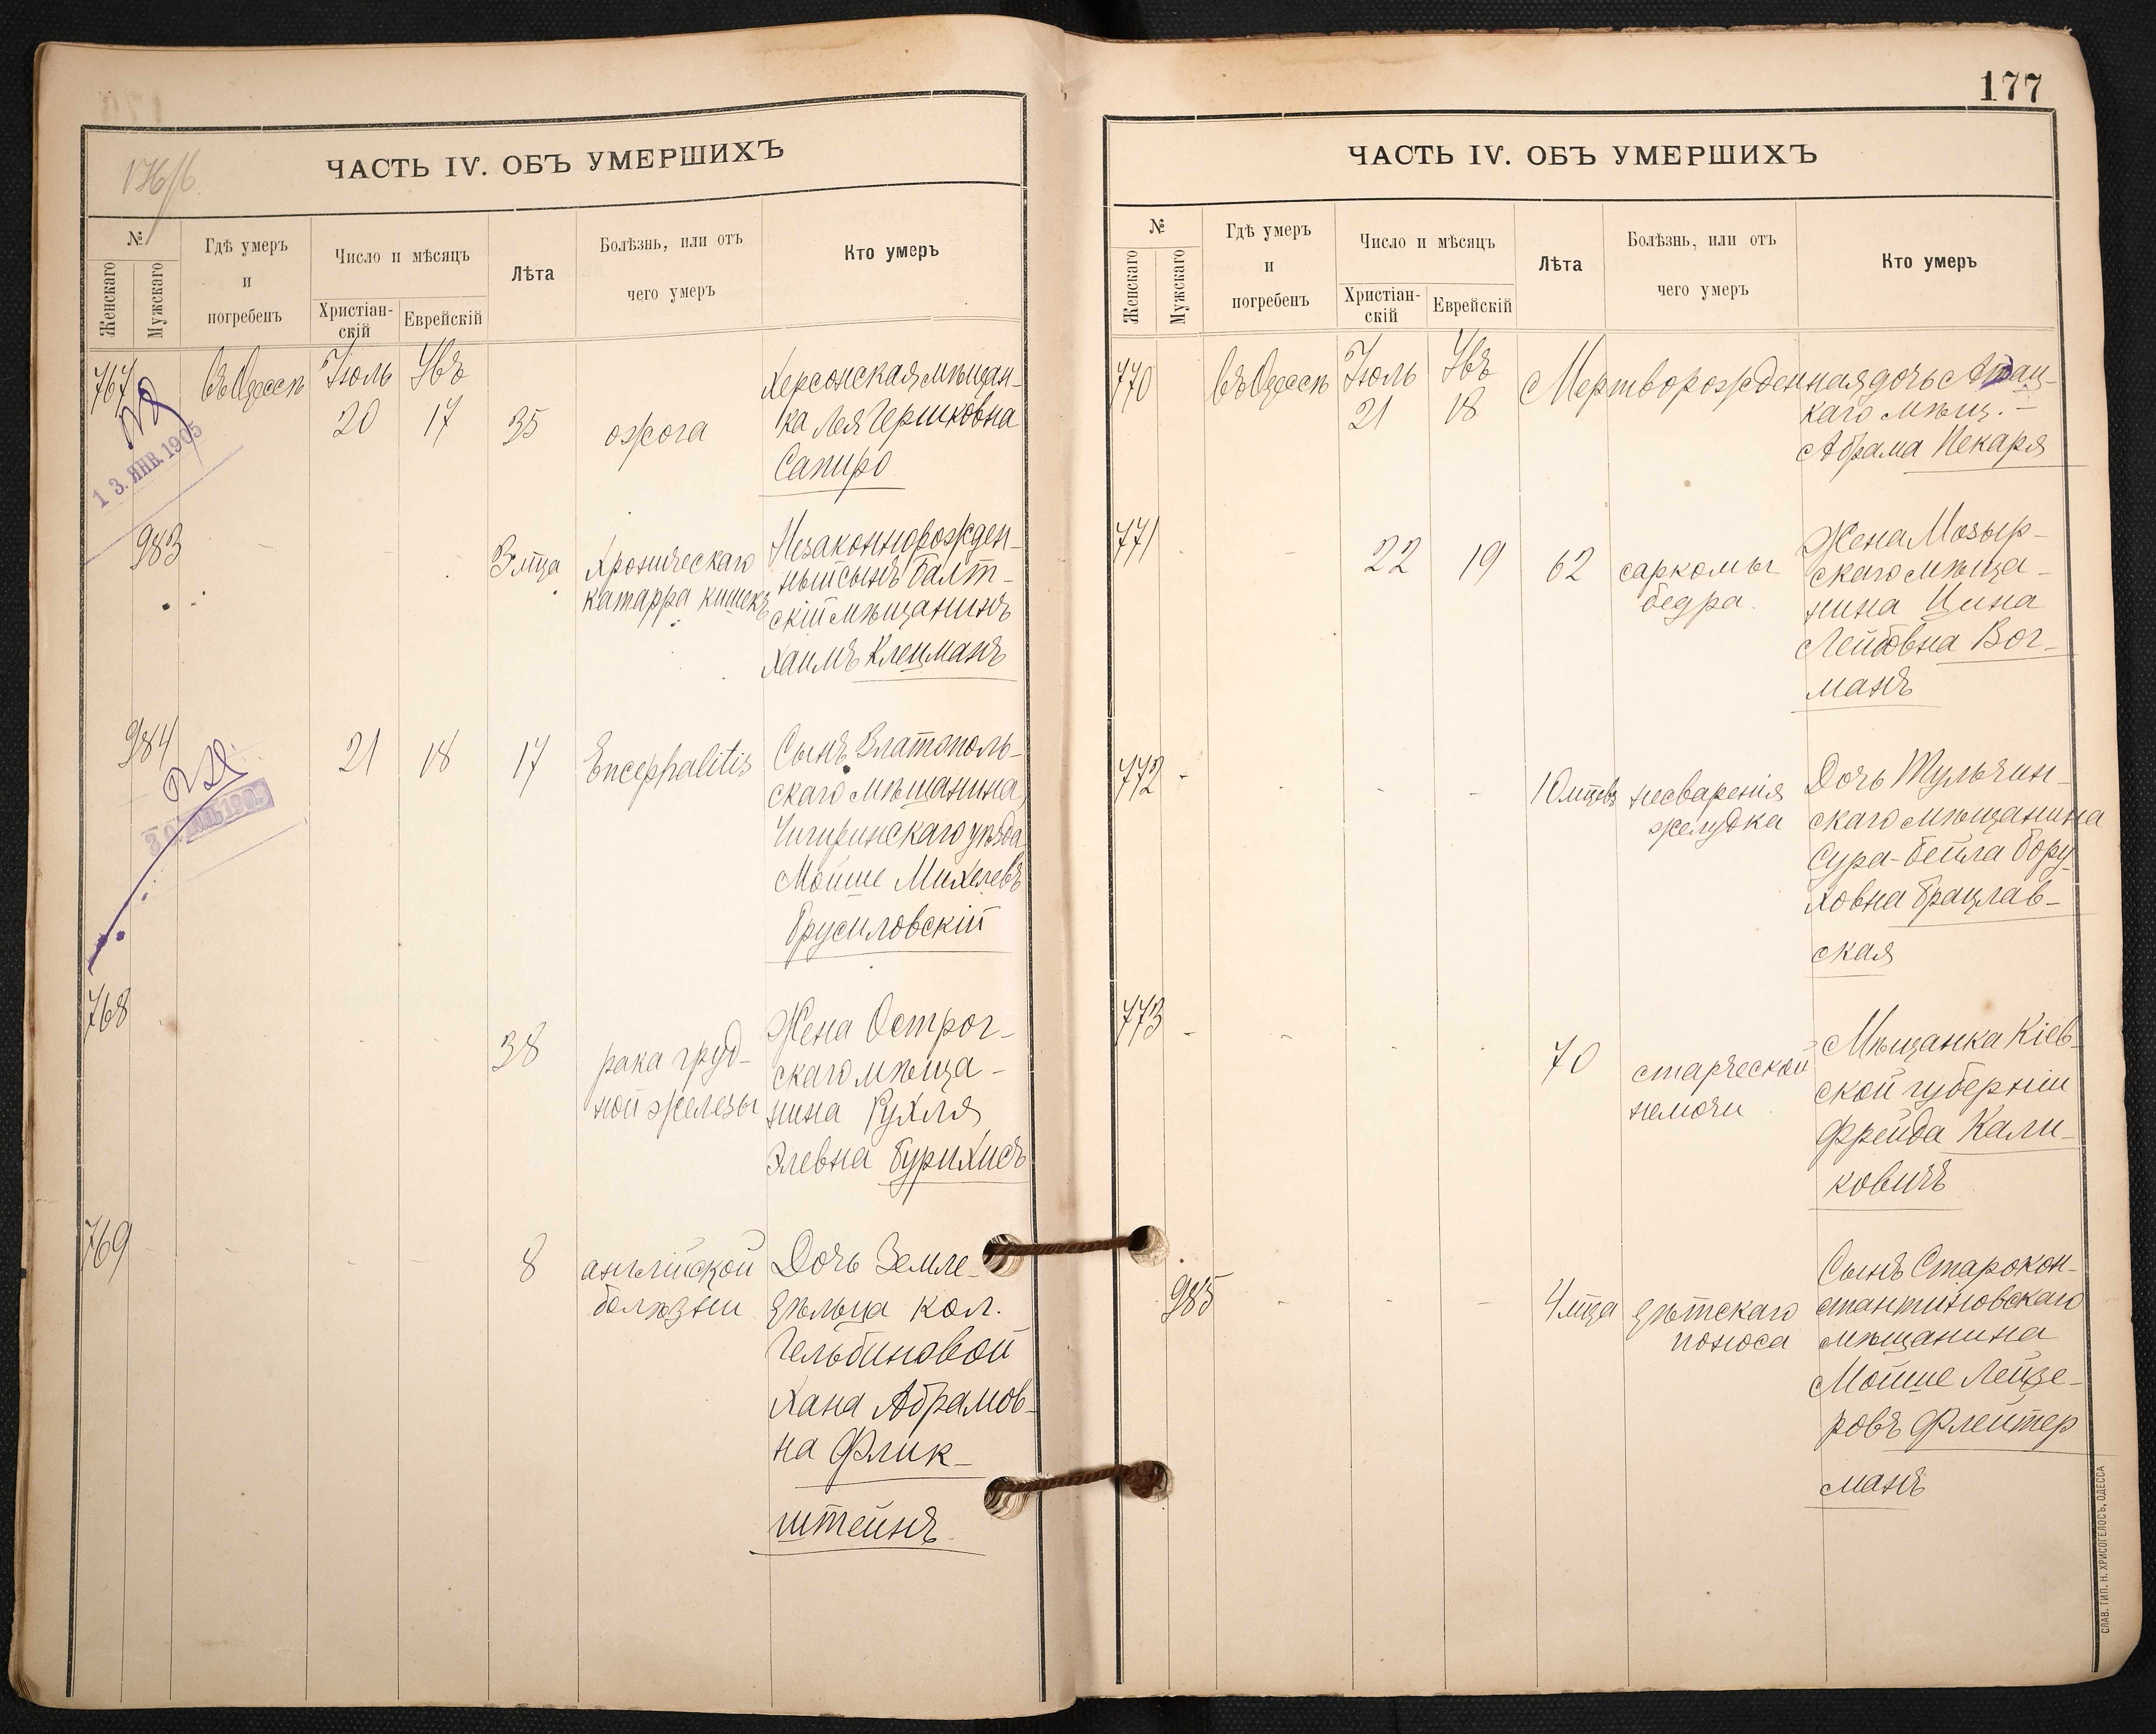 176/б.
ЧАСТЬ IV. ОБЪ УМЕРШИХЪ
№
Женскаго
Мужскаго
Гдѣ умеръ
и
погребенъ
Число и мѣсяцъ
Христіан-
скій
Еврейскій
Лѣта
Болѣзнь, или отъ
чего умеръ
Кто умеръ
767
въ Одессѣ
Іюль
20
Увъ
17
35
ожога
Херсонская мѣщан-
ка Лея Гершковна
Сапиро
13. ЯНВ. 1905
983
3 мца
Хроническаго
катарра кишекъ
Незаконнорожден-
ный сынъ балт-
скій мѣщанинъ
Хаимъ Клецманъ
984
21
18
17
Encephalitis
Сынъ Златополь-
скаго мѣщанина,
Чигиринскаго уѣзда
Мойше Михелевъ
Брусиловскій
768
38
рака груд-
ной железы
Жена Острог-
скаго мѣща-
нина Рухля
Элевна Бурихисъ
769
8
англійской
болѣзни
Дочь Земле-
дѣльца кол.
Гельбиновой
Хана Абрамов-
на Флик-
штейнъ
177
ЧАСТЬ IV. ОБЪ УМЕРШИХЪ
№
Женскаго
Мужскаго
Гдѣ умеръ
и
погребенъ
Число и мѣсяцъ
Христіан-
скій
Еврейскій
Лѣта
Болѣзнь, или отъ
чего умеръ
Кто умеръ
770
въ Одессѣ
Іюль
21
Увъ
18
Мертворожденная дочь Атац-
каго мѣщ.-
Абрама Пекаря
771
22
19
62
саркомы
бедра.
Жена Мозыр-
скаго мѣща-
нина Цина
Лейбовна Вог-
манъ
772
10 мцевъ
несваренія
желудка
Дочь Тульчин-
скаго мѣщанина
Сура-Бейла Бору-
ховна Брацлав-
ская
773
70
старческой
немочи
Мѣщанка Кіев-
ской губерніи
Фрейда Кали-
ковичъ
985
4 мца
дѣтскаго
поноса
Сынъ Старокон-
стантиновскаго
мѣщанина
Мойше Лейзе-
ровъ Флейтер
манъ
СЛАВ. ТИП. Н. ХРИСОГЕЛОСЪ, ОДЕССА